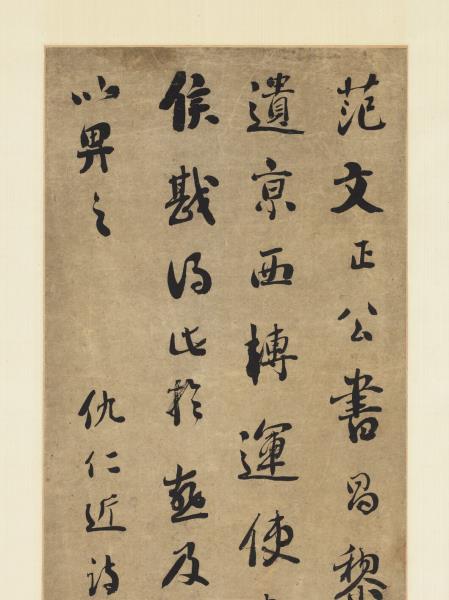 范文正公書昌黎
遺京西轉運使
侯戡得此於燕及
以畀之 仇仁近詩